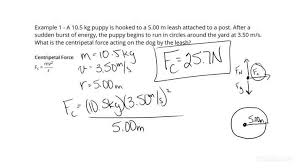 Example 1 - A 10.5 kg puppy is hooked to a 5.00 m leash attached to a post. After a
sudden burst of energy, the puppy begins to run in circles around the yard at 3.50 m/s.
What is the centripetal force acting on the dog by the leash?
Centripetal Force
Fc = mv²/r
m = 10.5kg
v = 3.50m/s
r = 5.00m
Fc = 25.7N
Fc = (10.5kg)(3.50m/s)²
5.00m
FN
Fc
Fg
5.00m